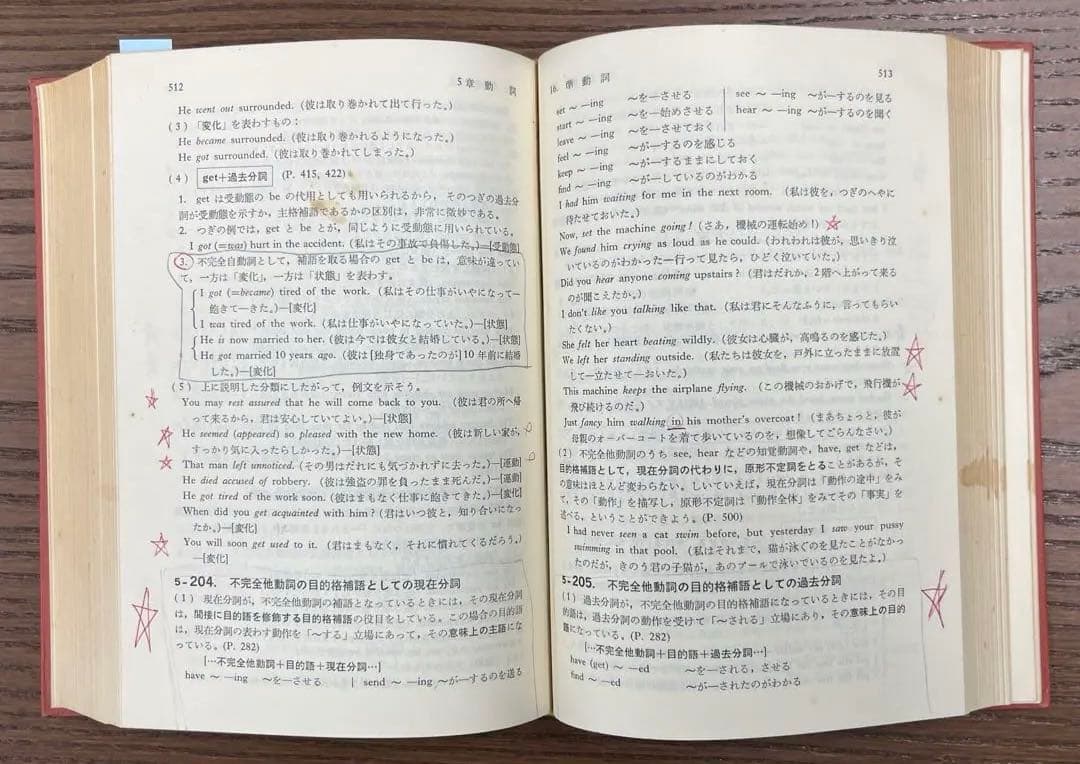 512
5章 動 詞
He went out surrounded. (彼は取り巻かれて出て行った。)
(3) 「変化」を表わすもの:
He became surrounded. (彼は取り巻かれるようになった。)
He got surrounded. (彼は取り巻かれてしまった。)
(4) get+過去分詞 (P. 415, 422)
1. get は受動態の be の代用としても用いられるから, そのつぎの過去分
詞が受動態を示すか, 主格補語であるかの区別は, 非常に微妙である。
2. つぎの例では, get と be とが, 同じように受動態に用いられている。
I got (=was) hurt in the accident. (私はその事故で負傷した。)—[受動態]
3. 不完全自動詞として, 補語を取る場合の get と be は, 意味が違ってい
て, 一方は「変化」, 一方は「状態」を表わす。
I got (=became) tired of the work. (私はその仕事がいやになって—
飽きて—きた。)—[変化]
I was tired of the work. (私は仕事がいやになっていた。)—[状態]
He is now married to her. (彼は今では彼女と結婚している。)—[状態]
He got married 10 years ago. (彼は[独身であったのが]10年前に結婚
した。)—[変化]
(5) 上に説明した分類にしたがって, 例文を示そう。
You may rest assured that he will come back to you. (彼は君の所へ帰
って来るから, 君は安心していてよい。)—[状態]
He seemed (appeared) so pleased with the new home. (彼は新しい家が,
すっかり気に入ったらしかった。)—[状態]
That man left unnoticed. (その男はだれにも気づかれずに去った。)—[運動]
He died accused of robbery. (彼は強盗の罪を負ったまま死んだ。)—[運動]
He got tired of the work soon. (彼はまもなく仕事に飽きてきた。)—[変化]
When did you get acquainted with him? (君はいつ彼と, 知り合いになっ
たか。)—[変化]
You will soon get used to it. (君はまもなく, それに慣れてくるだろう。)
—[変化]
5-204. 不完全他動詞の目的格補語としての現在分詞
(1) 現在分詞が, 不完全他動詞の補語となっているときには, その現在分詞
は, 間接に目的語を修飾する目的格補語の役目をしている。この場合の目的語
は, 現在分詞の表わす動作を「〜する」立場にあって, その意味上の主語にな
っている。(P. 282)
[…不完全他動詞+目的語+現在分詞…]
have 〜 —ing 〜を—させる | send 〜 —ing 〜が—するのを送る
16. 準 動 詞
513
set 〜 —ing 〜を—させる
see 〜 —ing 〜が—するのを見る
start 〜 —ing 〜を—始めさせる
hear 〜 —ing 〜が—するのを聞く
leave 〜 —ing 〜を—させておく
feel 〜 —ing 〜が—するのを感じる
keep 〜 —ing 〜が—するままにしておく
find 〜 —ing 〜が—しているのがわかる
I had him waiting for me in the next room. (私は彼を, つぎのへやに
待たせておいた。)
Now, set the machine going! (さあ, 機械の運転始め!)
We found him crying as loud as he could. (われわれは彼が, 思いきり泣
いているのがわかった—行って見たら, ひどく泣いていた。)
Did you hear anyone coming upstairs? (君はだれか, 2階へ上がって来る
のが聞こえたか。)
I don't like you talking like that. (私は君にそんなふうに, 言ってもらい
たくない。)
She felt her heart beating wildly. (彼女は心臓が, 高鳴るのを感じた。)
We left her standing outside. (私たちは彼女を, 戸外に立ったままに放置
して—立たせて—おいた。)
This machine keeps the airplane flying. (この機械のおかげで, 飛行機が
飛び続けるのだ。)
Just fancy him walking in his mother's overcoat! (まあちょっと, 彼が
母親のオーバーコートを着て歩いているのを, 想像してごらんなさい。)
(2) 不完全他動詞のうち see, hear などの知覚動詞や, have, get などは,
目的格補語として, 現在分詞の代わりに, 原形不定詞をとることがあるが, そ
の意味はほとんど変わらない。しいていえば, 現在分詞は「動作の途中」をみ
て, その「動作」を描写し, 原形不定詞は「動作全体」をみてその「事実」を
述べる, ということができよう。(P. 500)
I had never seen a cat swim before, but yesterday I saw your pussy
swimming in that pool. (私はそれまで, 猫が泳ぐのを見たことがなかっ
たのだが, きのう君の子猫が, あのプールで泳いでいるのを見たよ。)
5-205. 不完全他動詞の目的格補語としての過去分詞
(1) 過去分詞が, 不完全他動詞の目的格補語になっているときには, その目
的語は, 過去分詞の動作を受けて「〜される」立場にあり, その意味上の目的
語になっている。(P. 282)
[…不完全他動詞+目的語+過去分詞…]
have (get) 〜 —ed 〜を—される, させる
find 〜 —ed 〜が—されたのがわかる